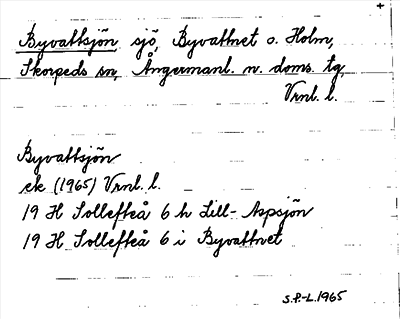 Byvattsjön sjö, Byvattnet o. Holm,
Skorpeds sn, Ångermanl. n. doms. tg,
Vrnl. l.
Byvattsjön
ek (1965) Vrnl. l.
19 H Sollefteå 6 h Lill-Aspsjön
19 H Sollefteå 6 i Byvattnet
S.P.-L. 1965